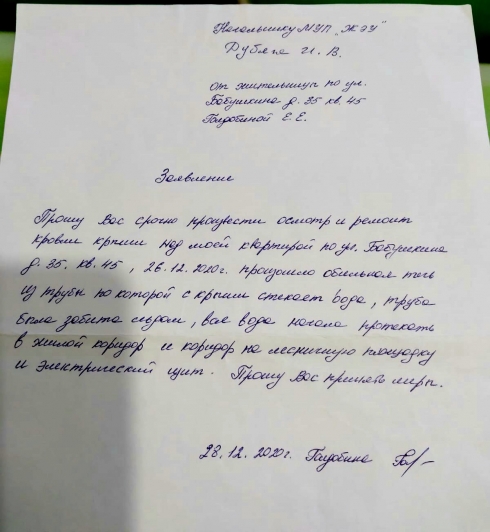 Начальнику МУП "ЖЭУ"
Рубяга И. В.
от жительницы по ул.
Бабушкина д. 35 кв. 45
Голдобиной Е. Е.
Заявление
Прошу Вас срочно произвести осмотр и ремонт
кровли крыши над моей квартирой по ул. Бабушкина
д. 35. кв. 45, 26.12.2020г. произошло обильная течь
из трубы по которой с крыши стекает вода, труба
была забита льдом, вся вода начала протекать
в жилой коридор и коридор на лесничную площадку
и электрический щит. Прошу Вас принять меры.
28.12.2020г. Голдобина